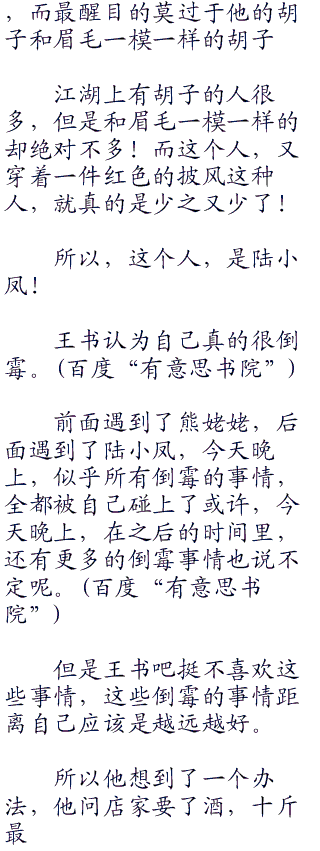 ，而最醒目的莫过于他的胡
子和眉毛一模一样的胡子
江湖上有胡子的人很
多，但是和眉毛一模一样的
却绝对不多！而这个人，又
穿着一件红色的披风这种
人，就真的是少之又少了！
所以，这个人，是陆小
凤！
王书认为自己真的很倒
霉。(百度“有意思书院”)
前面遇到了熊姥姥，后
面遇到了陆小凤，今天晚
上，似乎所有倒霉的事情，
全都被自己碰上了或许，今
天晚上，在之后的时间里，
还有更多的倒霉事情也说不
定呢。(百度“有意思书
院”)
但是王书吧挺不喜欢这
些事情，这些倒霉的事情距
离自己应该是越远越好。
所以他想到了一个办
法，他问店家要了酒，十斤
最